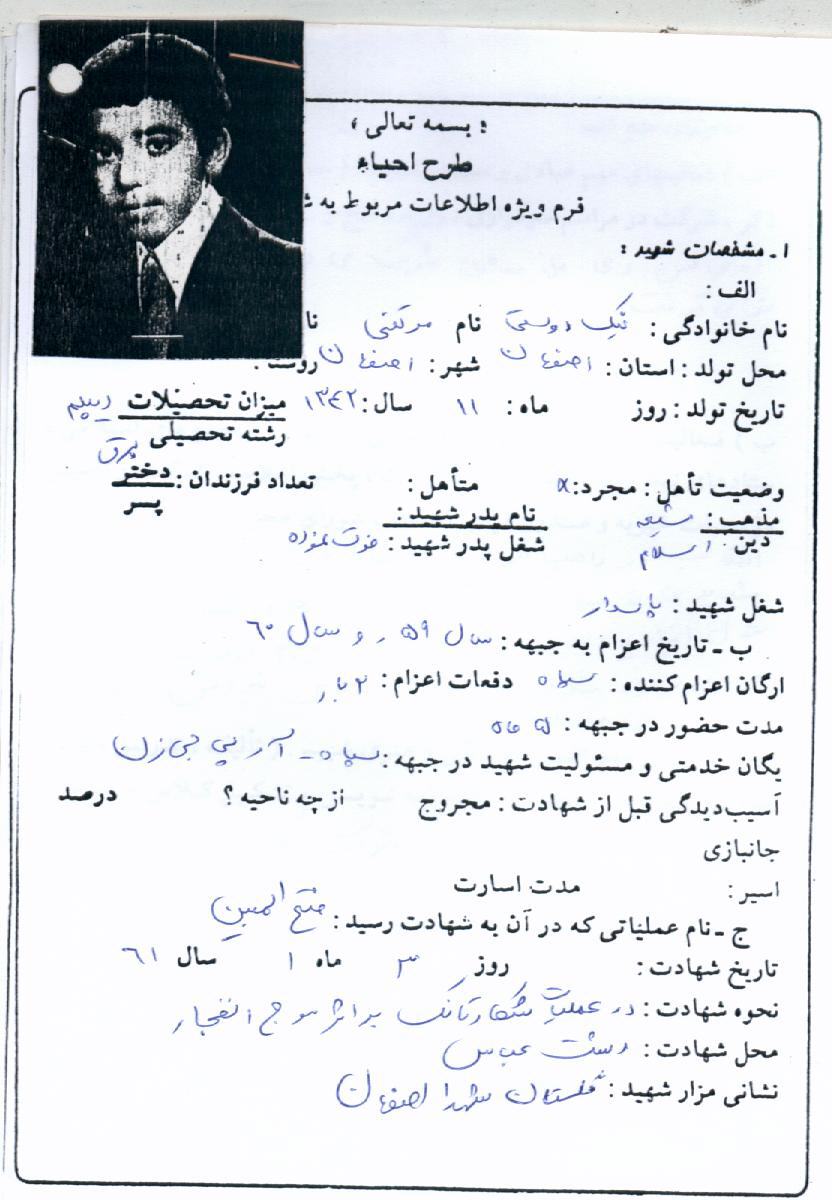 ؛ بسمه تعالی ؛
طرح احیاء
فرم ویژه اطلاعات مربوط به
۱ـ مشخصات شهید :
الف :
نام خانوادگی : نیک دوستی نام مرتضی نا
محل تولد : استان : اصفهان شهر : اصفهان روستا :
تاریخ تولد : روز ماه : ۱۱ سال : ۱۳۴۲ میزان تحصیلات دیپلم
رشته تحصیلی برق
وضعیت تأهل : مجرد : x متأهل : تعداد فرزندان : دختر
پسر
مذهب : شیعه نام پدر شهید :
دین : اسلام شغل پدر شهید : فوت نموده
شغل شهید : پاسدار
ب ـ تاریخ اعزام به جبهه : سال ۵۹ و سال ۶۰
ارگان اعزام کننده : سپاه دفعات اعزام : ۲ بار
مدت حضور در جبهه : ۵ ماه
یگان خدمتی و مسئولیت شهید در جبهه : سپاه ـ آرپی جی زن
آسیب‌دیدگی قبل از شهادت : مجروح از چه ناحیه ؟ درصد
جانبازی
اسیر : مدت اسارت
ج ـ نام عملیاتی که در آن به شهادت رسید : فتح المبین
تاریخ شهادت : روز ۳ ماه ۱ سال ۶۱
نحوه شهادت : در عملیات شکار تانک بر اثر موج انفجار
محل شهادت : دشت عباس
نشانی مزار شهید : گلستان شهدا اصفهان